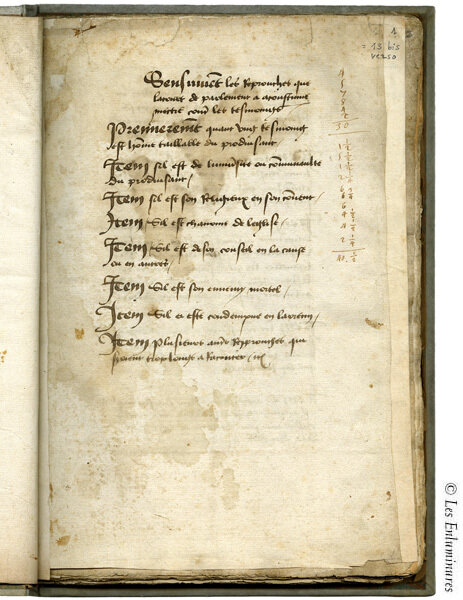 Sensuivent les Reprouches que
la court de parlement a acoustume
mettre contre les tesmoings
Premierement quant ung tesmoing
est homme taillable du produisant
Item sil est de luniversite ou communaulte
du produisant
Item sil est son Religieux en son couvent
Item Sil est chanoine de leglise
Item Sil est de son conseil en la cause
ou en autres
Item Sil est son ennemy mortel
Item Sil a este condempne
Item plusieurs autres Reprouches qui
seroient trop longs a Raconter
1
= 13 bis
verso
© Les Enluminures